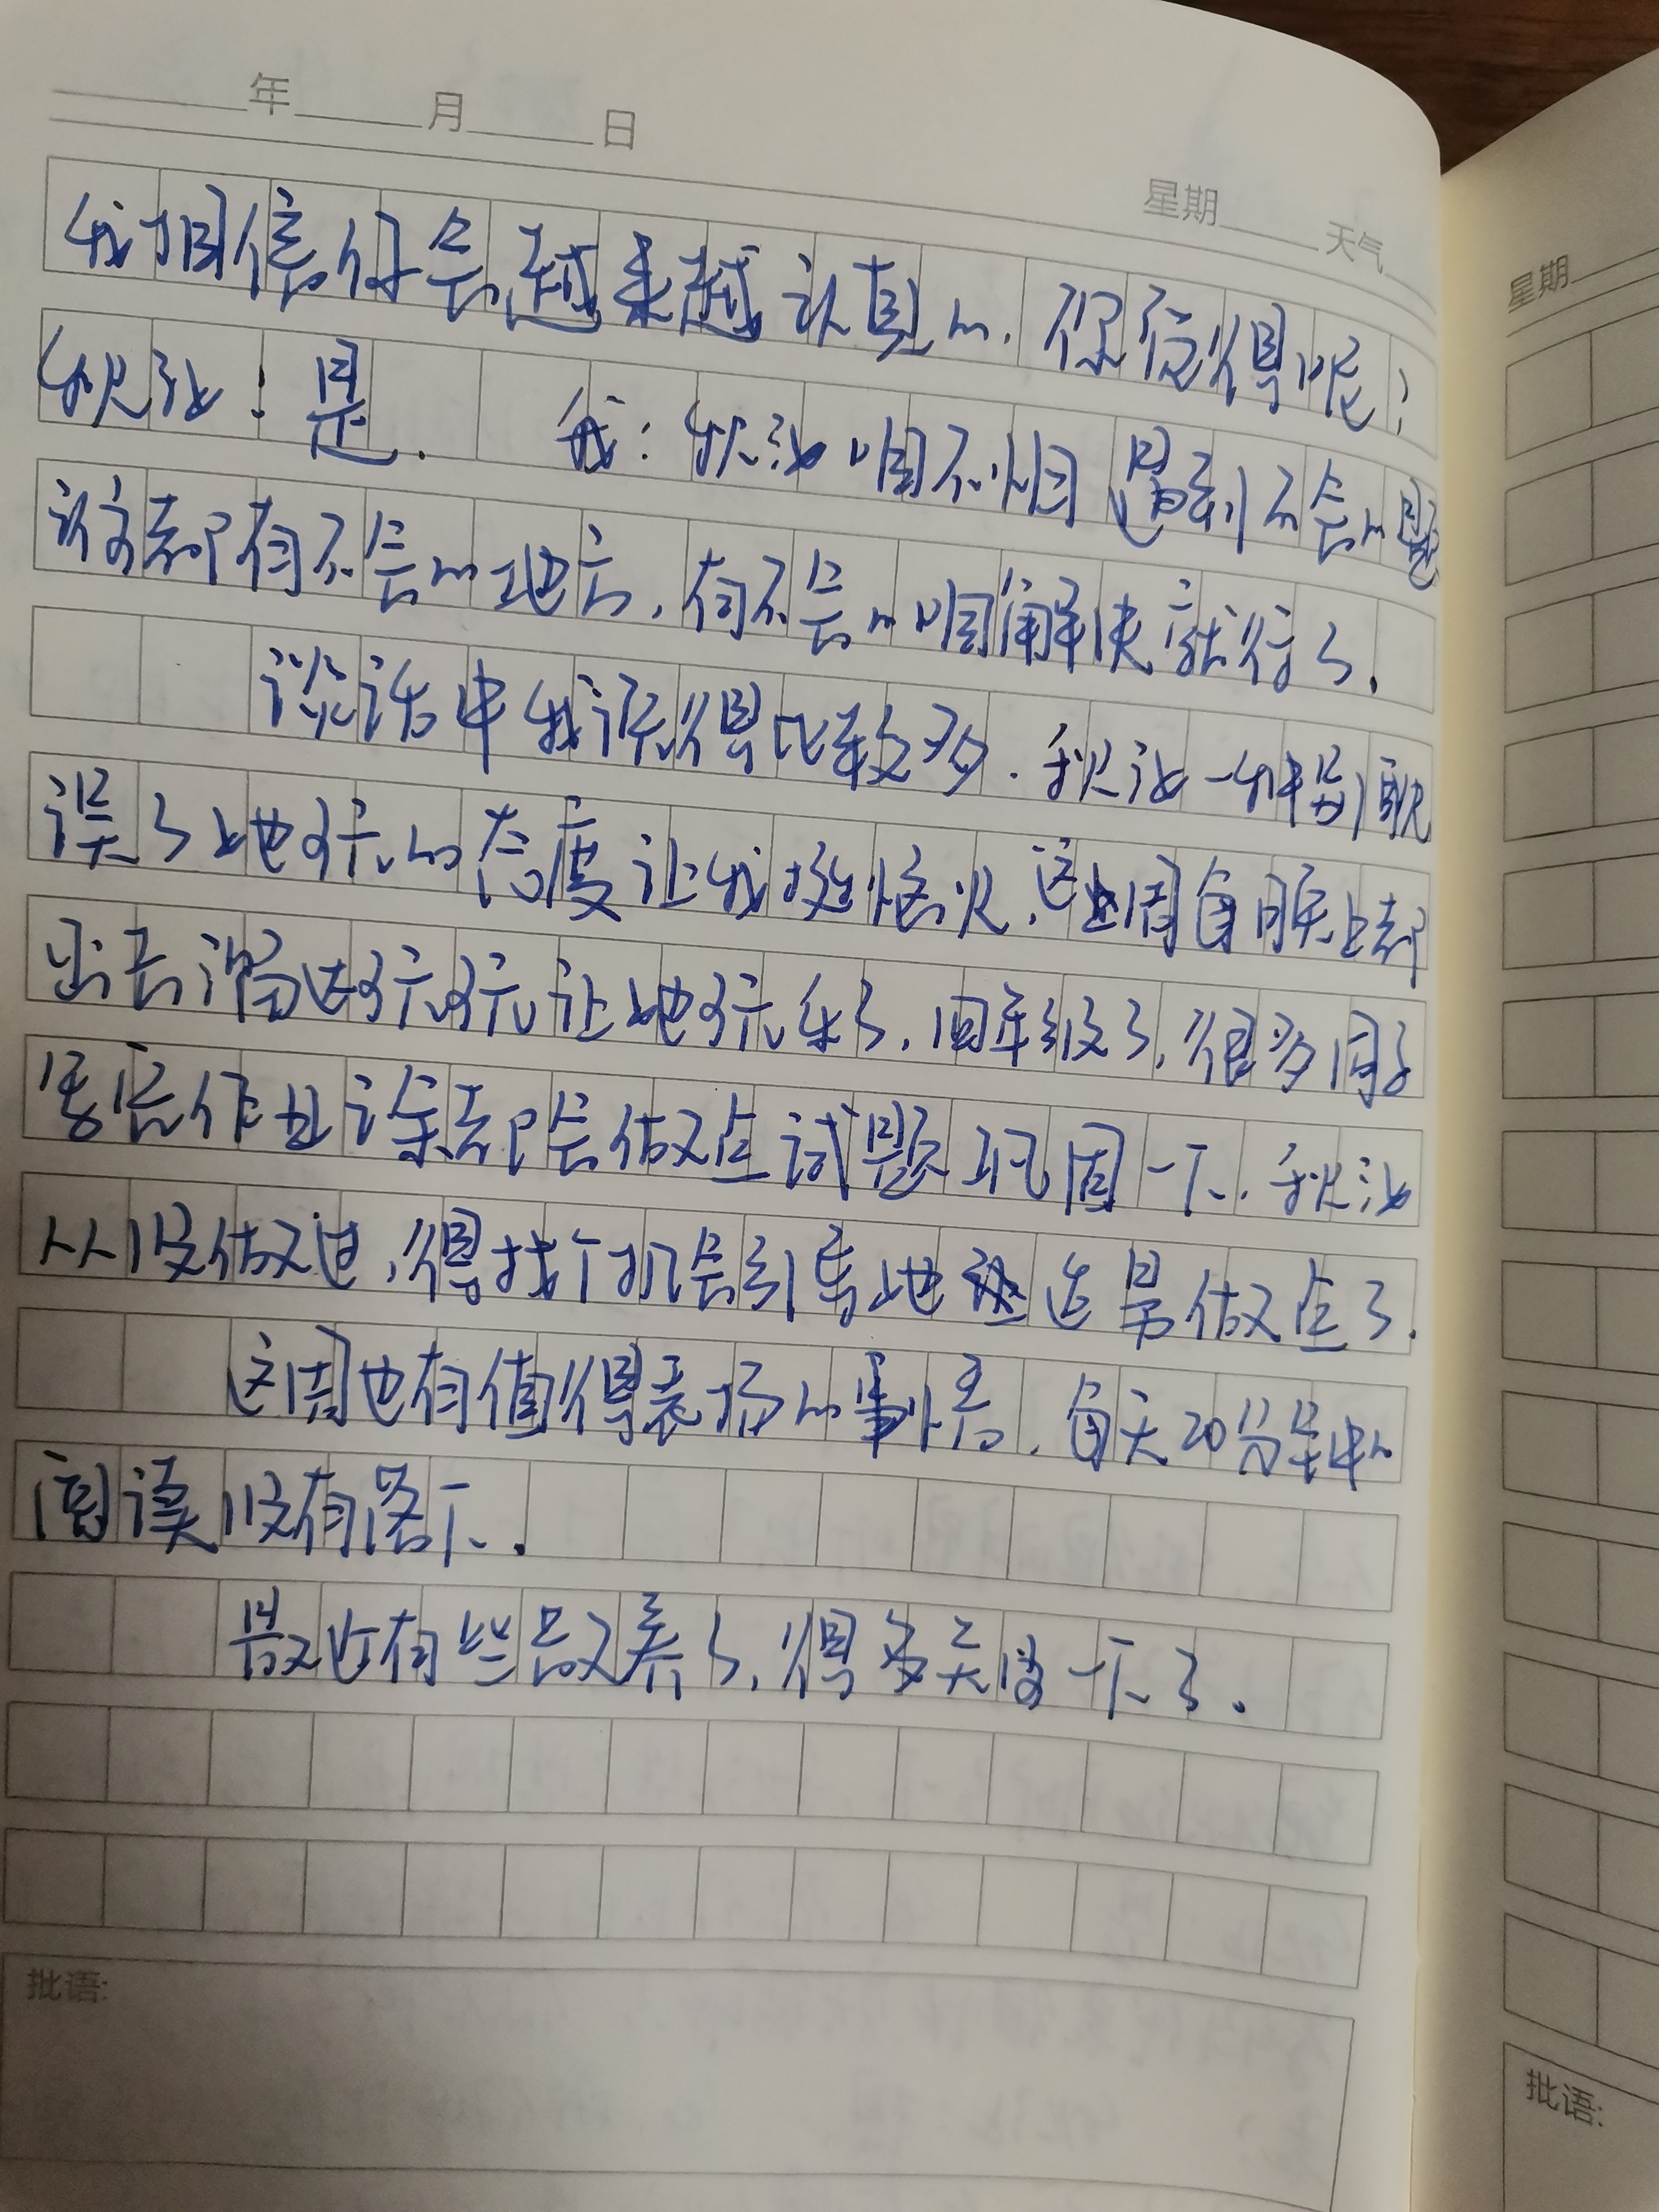 年 月 日
星期 天气
我相信你会越来越认真的，你觉得呢？
秋池：是。 我：秋池咱不怕遇到不会的题
谁都有不会的地方，有不会的咱解决就行了。
谈话中我说得比较多。秋池一种别耽
误了她玩的态度让我挺恼火，这周每晚上都
出去溜达玩玩让她玩乐了，四年级了，很多同学
写完作业课余都会做点试题巩固一下，秋池
从没做过，得找个机会引导她适量做点了。
这周也有值得表扬的事情，每天20分钟的
阅读没有落下。
最近有些放养了，得多关注一下了。
批语:
星期
批语: